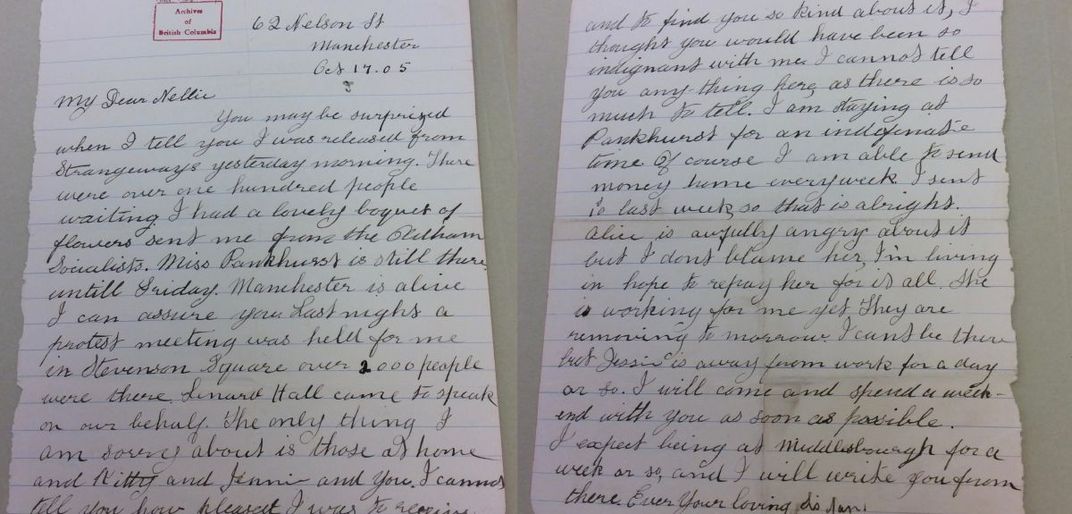 Archives
of
British Columbia
62 Nelson St
Manchester
Oct 17.05
My Dear Nellie
You may be surprized
when I tell you I was released from
Strangeways yesterday morning. There
were over one hundred people
waiting I had a lovely boquet of
flowers sent me from the Oldham
Socialists. Miss Pankhurst is still there
untill Friday. Manchester is alive
I can assure you. Last night a
protest meeting was held for me
in Stevenson Square over 2000 people
were there. Hall came to speak
on our behalf. The only thing I
am sorry about is those at home
and Kitty and Jennie and you. I cannot
tell you how pleased I was to receive
and to find you so kind about it, I
thought you would have been so
indignant with me. I cannot tell
you any thing here as there is so
much to tell. I am staying at
Pankhurst for an indefinate
time Of course I am able to send
money home everyweek I sent
last week so that is alright.
Alice is awfully angry about it
but I dont blame her, I'm living
in hope to repay her for it all. She
is working for me yet They are
removing to morrow. I cant be there
but is away from work for a day
or so. I will come and spend a week-
end with you as soon as possible.
I expect being at Middlesbourgh for a
week or so, and I will write you from
there. Ever Your loving